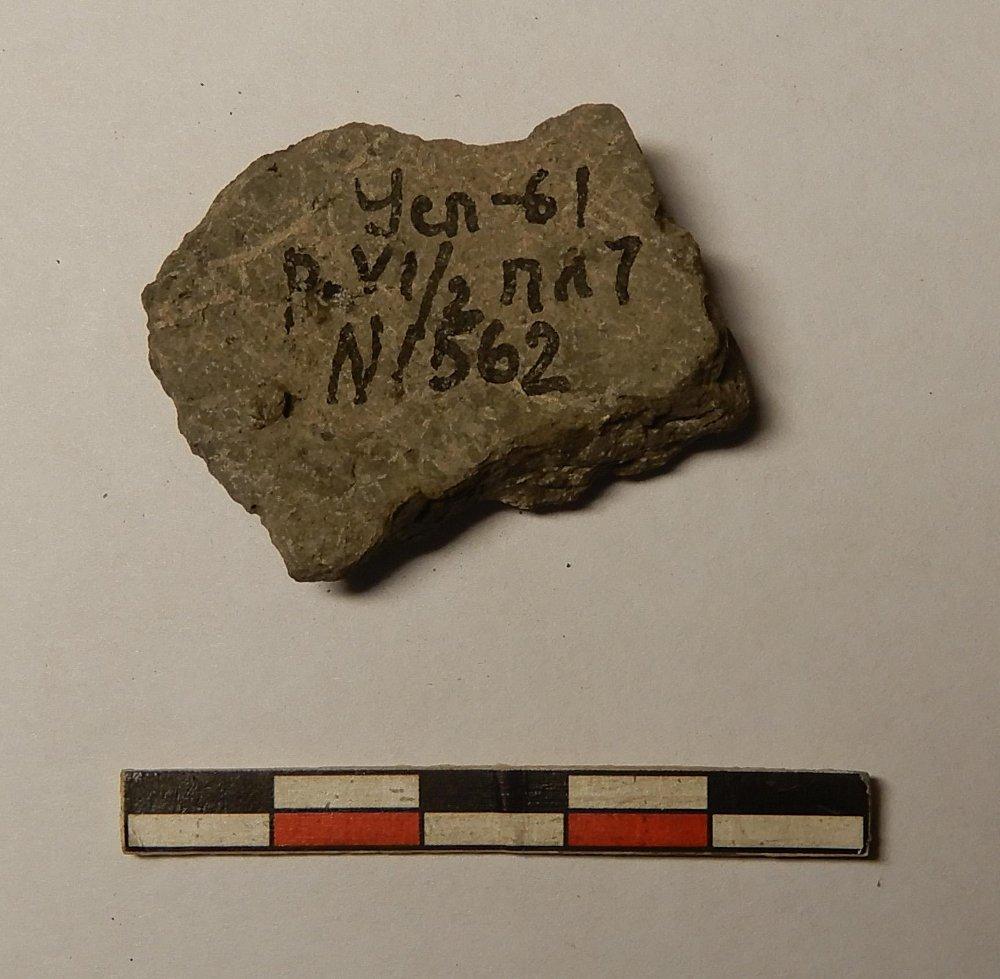 Усп-61
Р. VI/2 пл 7
N/562